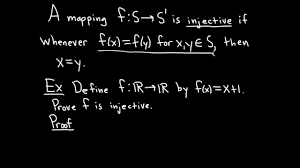 A mapping f:S→S' is injective if
whenever f(x)=f(y) for x,y∈S, then
x=y.
Ex Define f:ℝ→ℝ by f(x)=x+1.
Prove f is injective.
Proof